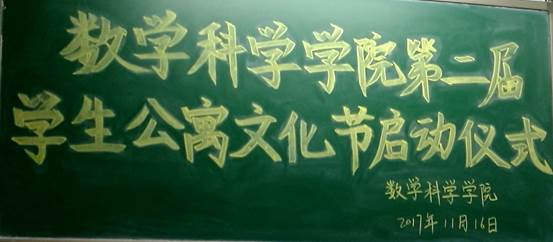 数学科学学院第二届
学生公寓文化节启动仪式
数学科学学院
2017年11月16日